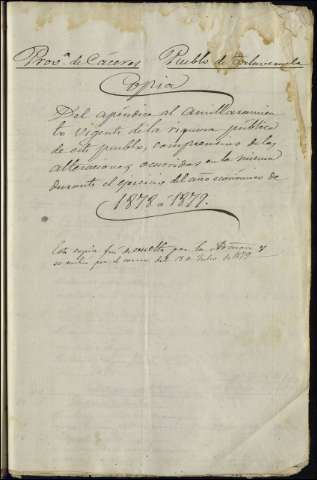 Prov.ª de Cáceres Pueblo de Talaveruela
Copia
Del apéndice al amillaramien
to vigente de la riqueza pública
de este pueblo, comprensivo de las
alteraciones ocurridas en la misma
durante el ejercicio del año económico de
1878 a 1879.
Esta copia fue devuelta por la Admon y
por el correo del de Julio de 1879